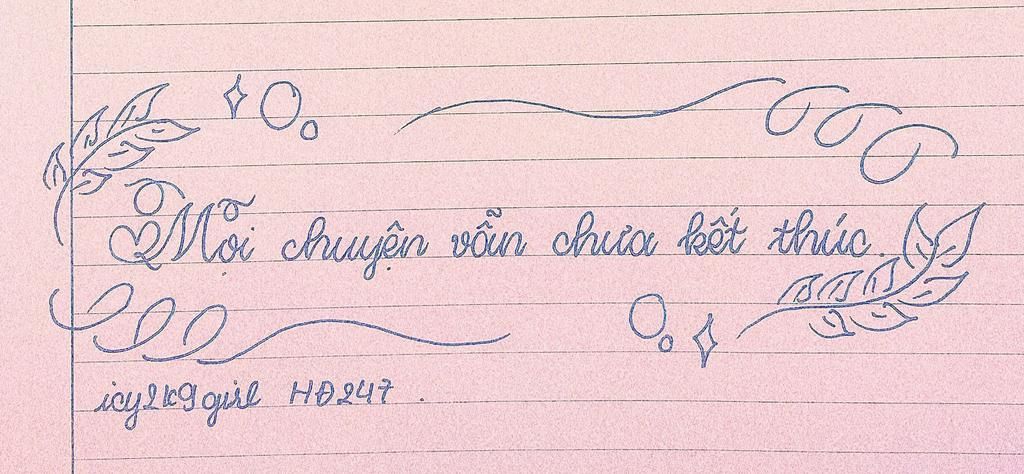 Mọi chuyện vẫn chưa kết thúc.
icy2k9girl HĐ247.